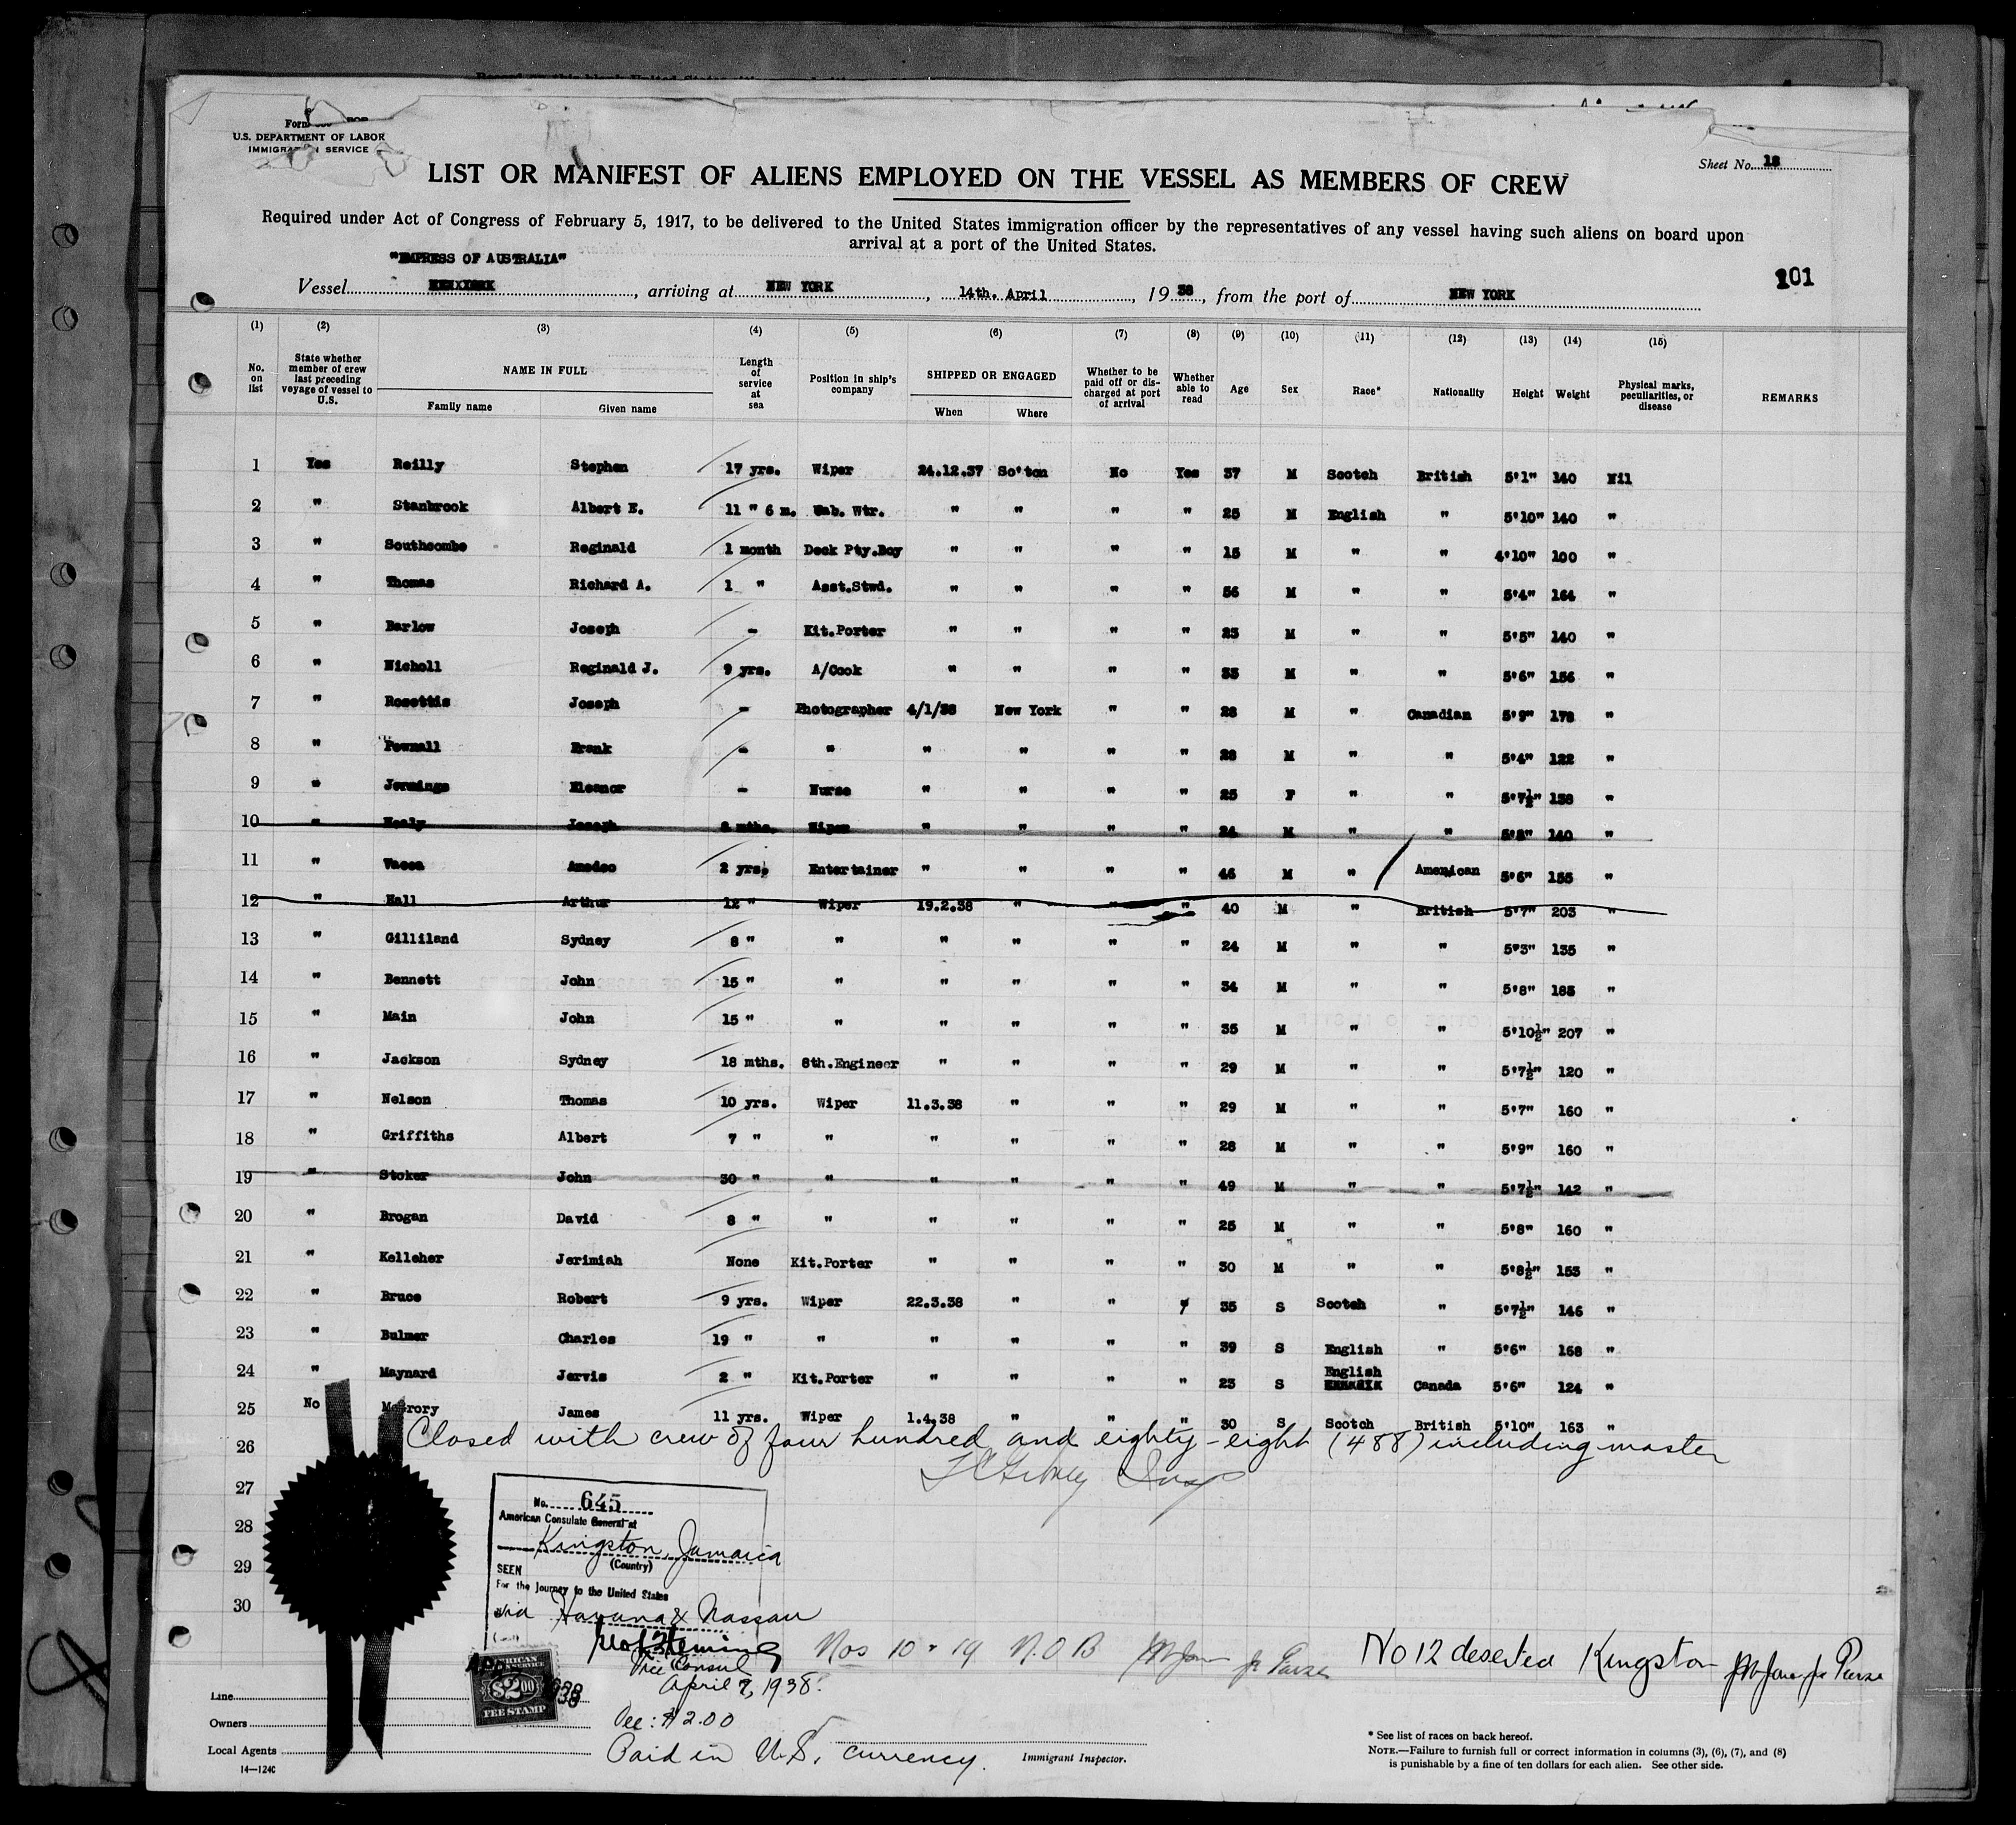 Form
U.S. DEPARTMENT OF LABOR
IMMIGRATION SERVICE
Sheet No. 18
LIST OR MANIFEST OF ALIENS EMPLOYED ON THE VESSEL AS MEMBERS OF CREW
Required under Act of Congress of February 5, 1917, to be delivered to the United States immigration officer by the representatives of any vessel having such aliens on board upon
arrival at a port of the United States.
"EMPRESS OF AUSTRALIA"
101
Vessel , arriving at NEW YORK , 14th. April , 1938 , from the port of NEW YORK
(1) (2) (3) (4) (5) (6) (7) (8) (9) (10) (11) (12) (13) (14) (15)
No. on list State whether member of crew last preceding voyage of vessel to U.S. NAME IN FULL Family name Given name Length of service at sea Position in ship's company SHIPPED OR ENGAGED When Where Whether to be paid off or discharged at port of arrival Whether able to read Age Sex Race* Nationality Height Weight Physical marks, peculiarities, or disease REMARKS
1 Yes Reilly Stephen 17 yrs. Wiper 24.12.37 So'ton No Yes 37 M Scotch British 5'1" 140 Nil
2 " Stanbrook Albert E. 11 " 6 m. Wtr. " " " " 25 M English " 5'10" 140 "
3 " Southcombe Reginald 1 month Deck Pty.Boy " " " " 15 M " " 4'10" 100 "
4 " Thomas Richard A. 1 " Asst.Stwd. " " " " 56 M " " 5'4" 164 "
5 " Barlow Joseph - Kit.Porter " " " " 23 M " " 5'5" 140 "
6 " Nicholl Reginald J. 9 yrs. A/Cook " " " " 33 M " " 5'6" 156 "
7 " Rosettis Joseph - Photographer 4/1/38 New York " " 28 M " Canadian 5'9" 178 "
8 " Pownall Frank - " " " " " 28 M " " 5'4" 122 "
9 " Jennings Eleanor - Nurse " " " " 25 F " " 5'7½" 138 "
10 " Healy Joseph 8 mths. Wiper " " " " 24 M " " 5'8" 140 "
11 " Vacca Amedeo 2 yrs. Entertainer " " " " 46 M " American 5'6" 155 "
12 " Hall Arthur 12 " Wiper 19.2.38 " " " 40 M " British 5'7" 203 "
13 " Gilliland Sydney 8 " " " " " " 24 M " " 5'3" 135 "
14 " Bennett John 15 " " " " " " 34 M " " 5'8" 185 "
15 " Main John 15 " " " " " " 35 M " " 5'10½" 207 "
16 " Jackson Sydney 18 mths. 8th.Engineer " " " " 29 M " " 5'7½" 120 "
17 " Nelson Thomas 10 yrs. Wiper 11.3.38 " " " 29 M " " 5'7" 160 "
18 " Griffiths Albert 7 " " " " " " 28 M " " 5'9" 160 "
19 " Stoker John 30 " " " " " " 49 M " " 5'7½" 142 "
20 " Brogan David 8 " " " " " " 25 M " " 5'8" 160 "
21 " Kelleher Jerimiah None Kit.Porter " " " " 30 M " " 5'8½" 153 "
22 " Bruce Robert 9 yrs. Wiper 22.3.38 " " " 35 S Scotch " 5'7½" 146 "
23 " Bulmer Charles 19 " " " " " " 39 S English " 5'6" 168 "
24 " Maynard Jervis 2 " Kit.Porter " " " " 23 S English Canada 5'6" 124 "
25 No James 11 yrs. Wiper 1.4.38 " " " 30 S Scotch British 5'10" 163 "
26 Closed with crew of four hundred and eighty-eight (488) including master
27
28
29
30
No. 645
American Consulate General at
Kingston, Jamaica
(Country)
SEEN
For the journey to the United States
via Havana & Nassau
Vice Consul
April 7, 1938.
AMERICAN
SERVICE
$2.00
FEE STAMP
Fee: $2.00
Paid in U.S. currency.
Nos 10 & 19 N.O.B
No 12 deserted Kingston
Line
Owners
Local Agents
14—124C
Immigrant Inspector.
* See list of races on back hereof.
NOTE.—Failure to furnish full or correct information in columns (3), (6), (7), and (8)
is punishable by a fine of ten dollars for each alien. See other side.